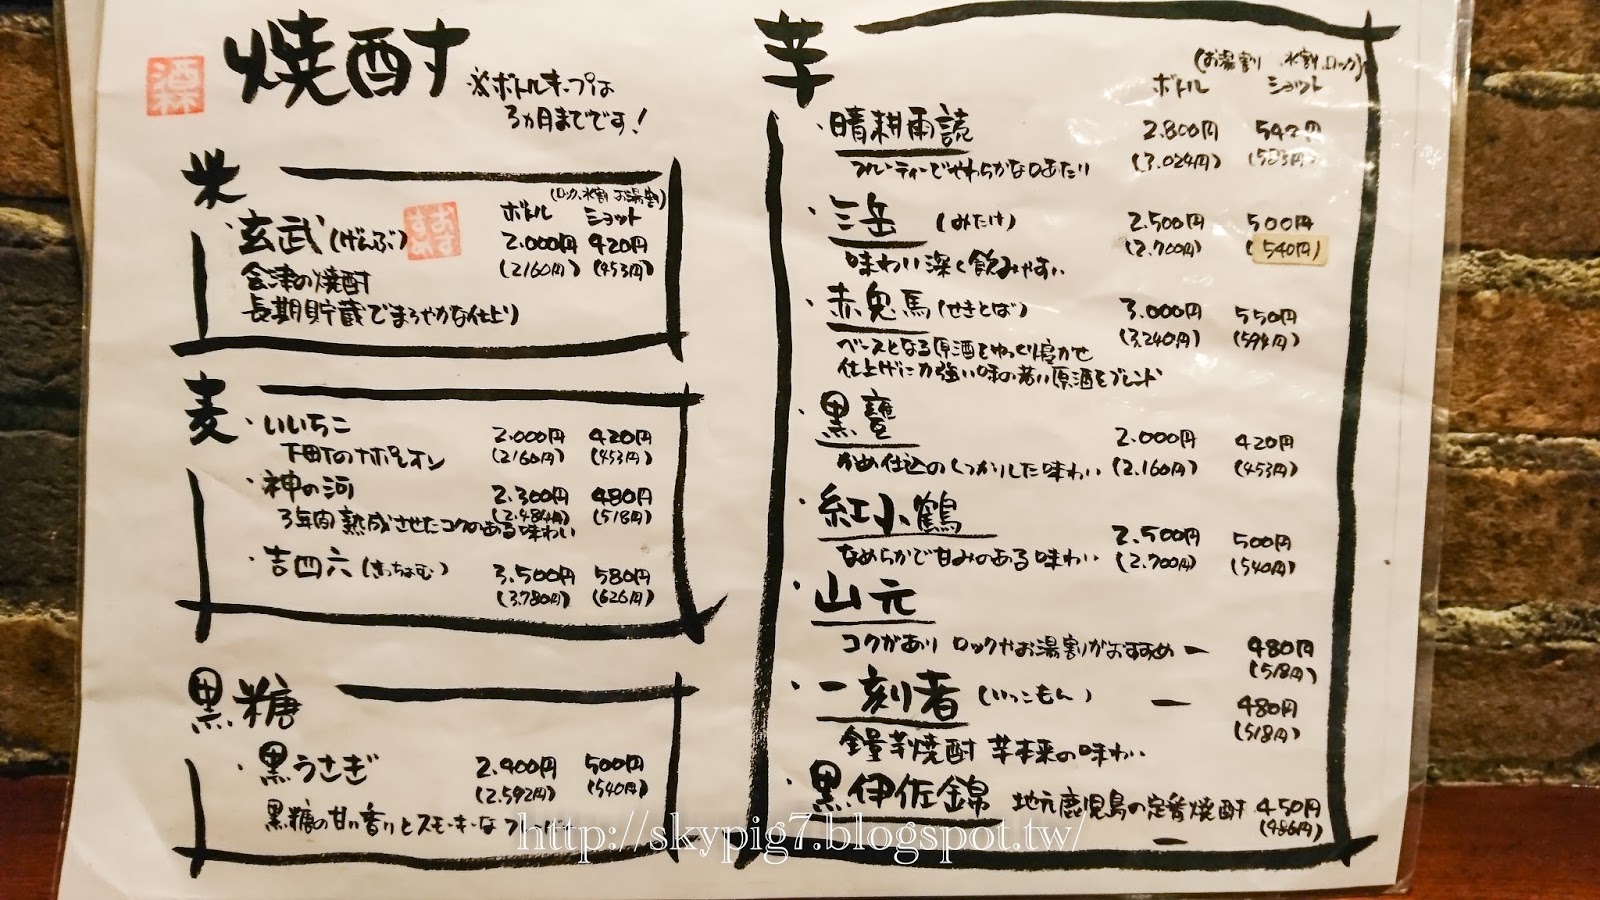 酒林
焼酎
※ボトルキープは
3ヵ月までです!
米
(ロック、水割 お湯割)
ボトル ショット
・玄武(げんぶ) おすすめ 2.000円 420円
(2160円) (453円)
会津の焼酎
長期貯蔵でまろやかな仕上り
麦
・いいちこ 2.000円 420円
下町のナポレオン (2160円) (453円)
・神の河 2.300円 480円
(2.484円) (518円)
3年間熟成させたコクのある味わい
・吉四六(きっちょむ) 3.500円 580円
(3.780円) (626円)
黒糖
・黒うさぎ 2.400円 500円
(2.592円) (540円)
黒糖の甘い香りとスモーキーな
芋
(お湯割、水割、ロック)
ボトル ショット
・晴耕雨読 2.800円
フルーティーでやわらかな口あたり (3.024円)
・三岳(みたけ) 2.500円 500円
(2.700円) (540円)
味わい深く飲みやすい
・赤兎馬(せきとば) 3.000円 550円
(3.240円) (594円)
ベースとなる原酒をゆっくり寝かせ
仕上げに力強い味の若い原酒をブレンド
・黒甕 2.000円 420円
かめ仕込のしっかりした味わい (2.160円) (453円)
・紅小鶴 2.500円 500円
なめらかで甘みのある味わい (2.700円) (540円)
・山元
コクがあり ロックやお湯割がおすすめ ー 480円
(518円)
・一刻者(いっこもん) ー 480円
(518円)
全量芋焼酎 芋本来の味わい
・黒伊佐錦 地元鹿児島の定番焼酎 450円
ー (486円)
http://skypig7.blogspot.tw/